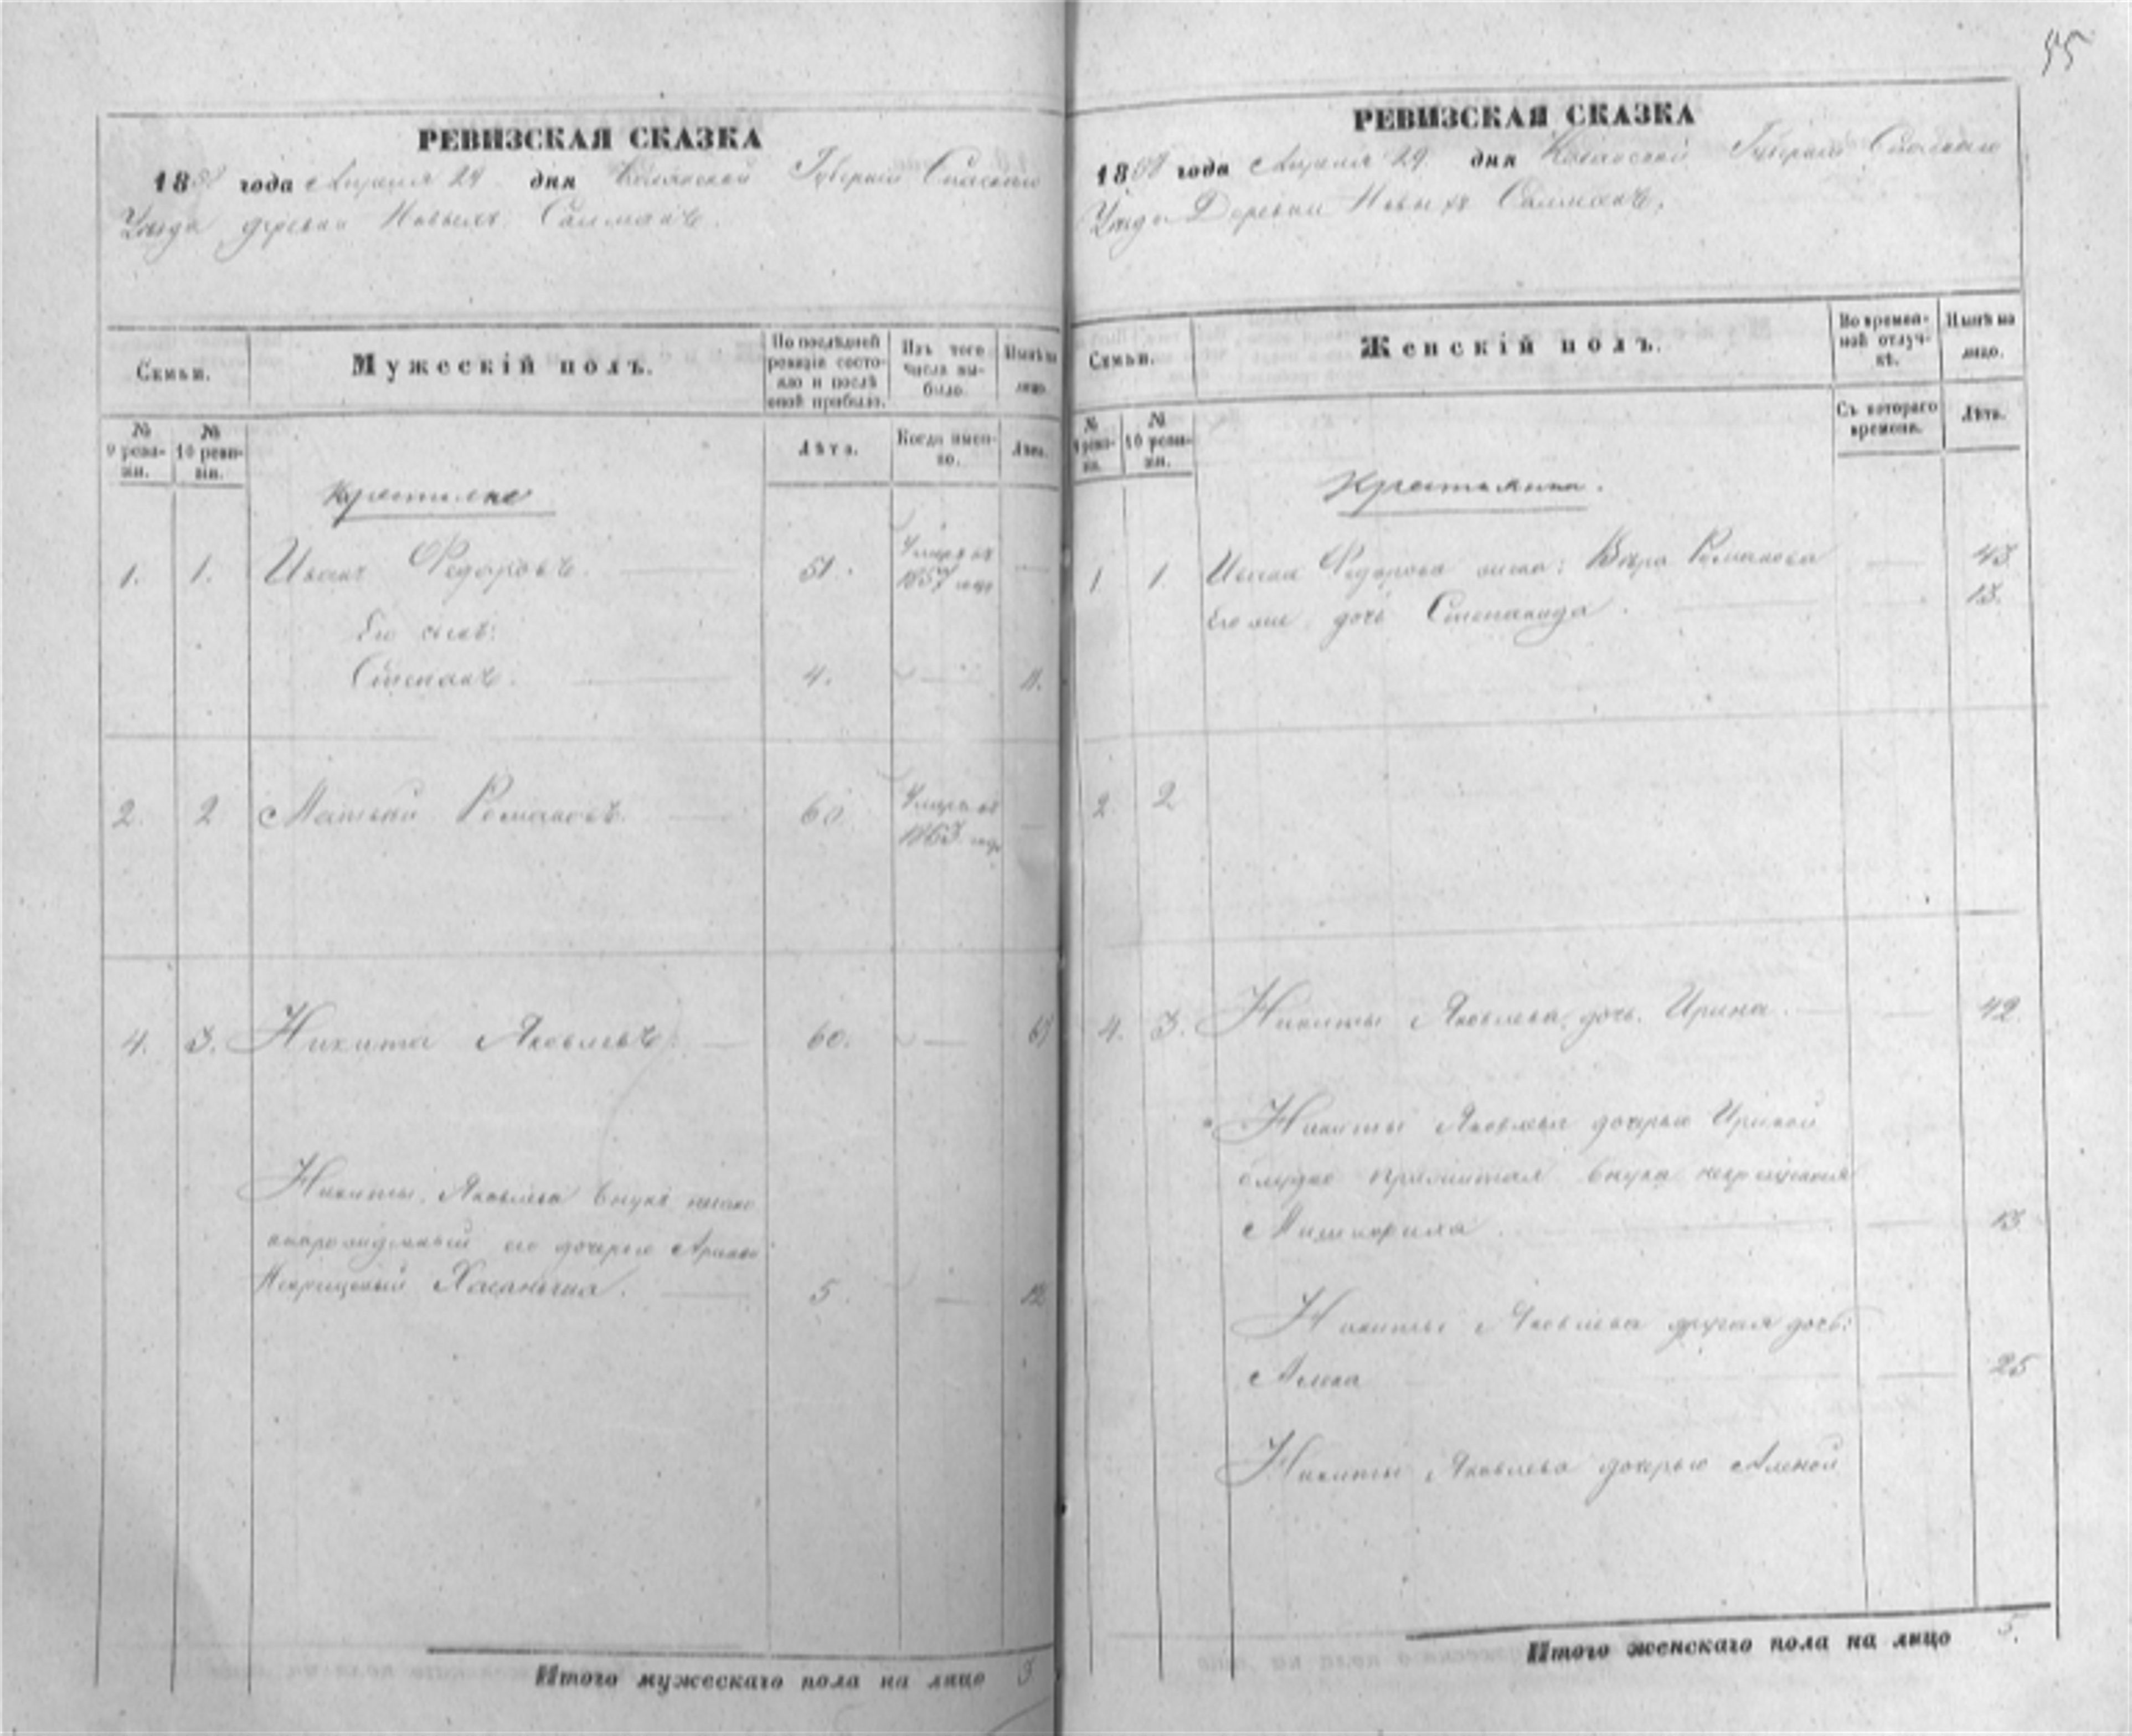 95
РЕВИЗСКАЯ СКАЗКА
1858 года Апреля 29 дня Казанской Губернiи Спаскаго
Уезда деревни Новыхъ Салманъ.
Семьи.
Мужескiй полъ.
По последней ревизiи состояло и после оной прибыло.
Изъ того числа выбыло.
Ныне на лицо.
№ 9 ревизiи.
№ 10 ревизiи.
Лета.
Когда именно.
Лета.
Крестьяне
1. 1. Иванъ Федоровъ. 51. Умеръ въ
1857 году
Его сынъ:
Степанъ. 4. 11.
2. 2 Матвей Романовъ. 60. Умеръ въ
4. 3. Никита Яковлевъ. 60. 67
Никиты Яковлева внукъ
его дочерью
Некрещеный 5. 12
Итого мужескаго пола на лицо 3
РЕВИЗСКАЯ СКАЗКА
1858 года Апреля 29. дня Казанской Губернiи Спаскаго
Уезда Деревни Новыхъ Салманъ.
Семьи.
Женскiй полъ.
Во временной отлучке.
Ныне на лицо.
№ 9 ревизiи.
№ 10 ревизiи.
Съ котораго времени.
Лета.
Крестьяне.
1 1. Ивана Федорова жена: Вера Романова 43.
Его же дочь Степанида. 13.
2. 2
4. 3. Никиты Яковлева дочь Ирина. 42.
Никиты Яковлева дочерью Ириной
блудно прижитая внука некрещеная
13
Никиты Яковлева другая дочь:
Алена 25
Никиты Яковлева дочерью Аленой
Итого женскаго пола на лицо 5.